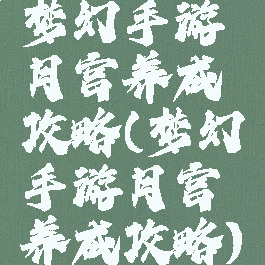 梦幻手游
月宫养成
攻略(梦幻
手游月宫
养成攻略)